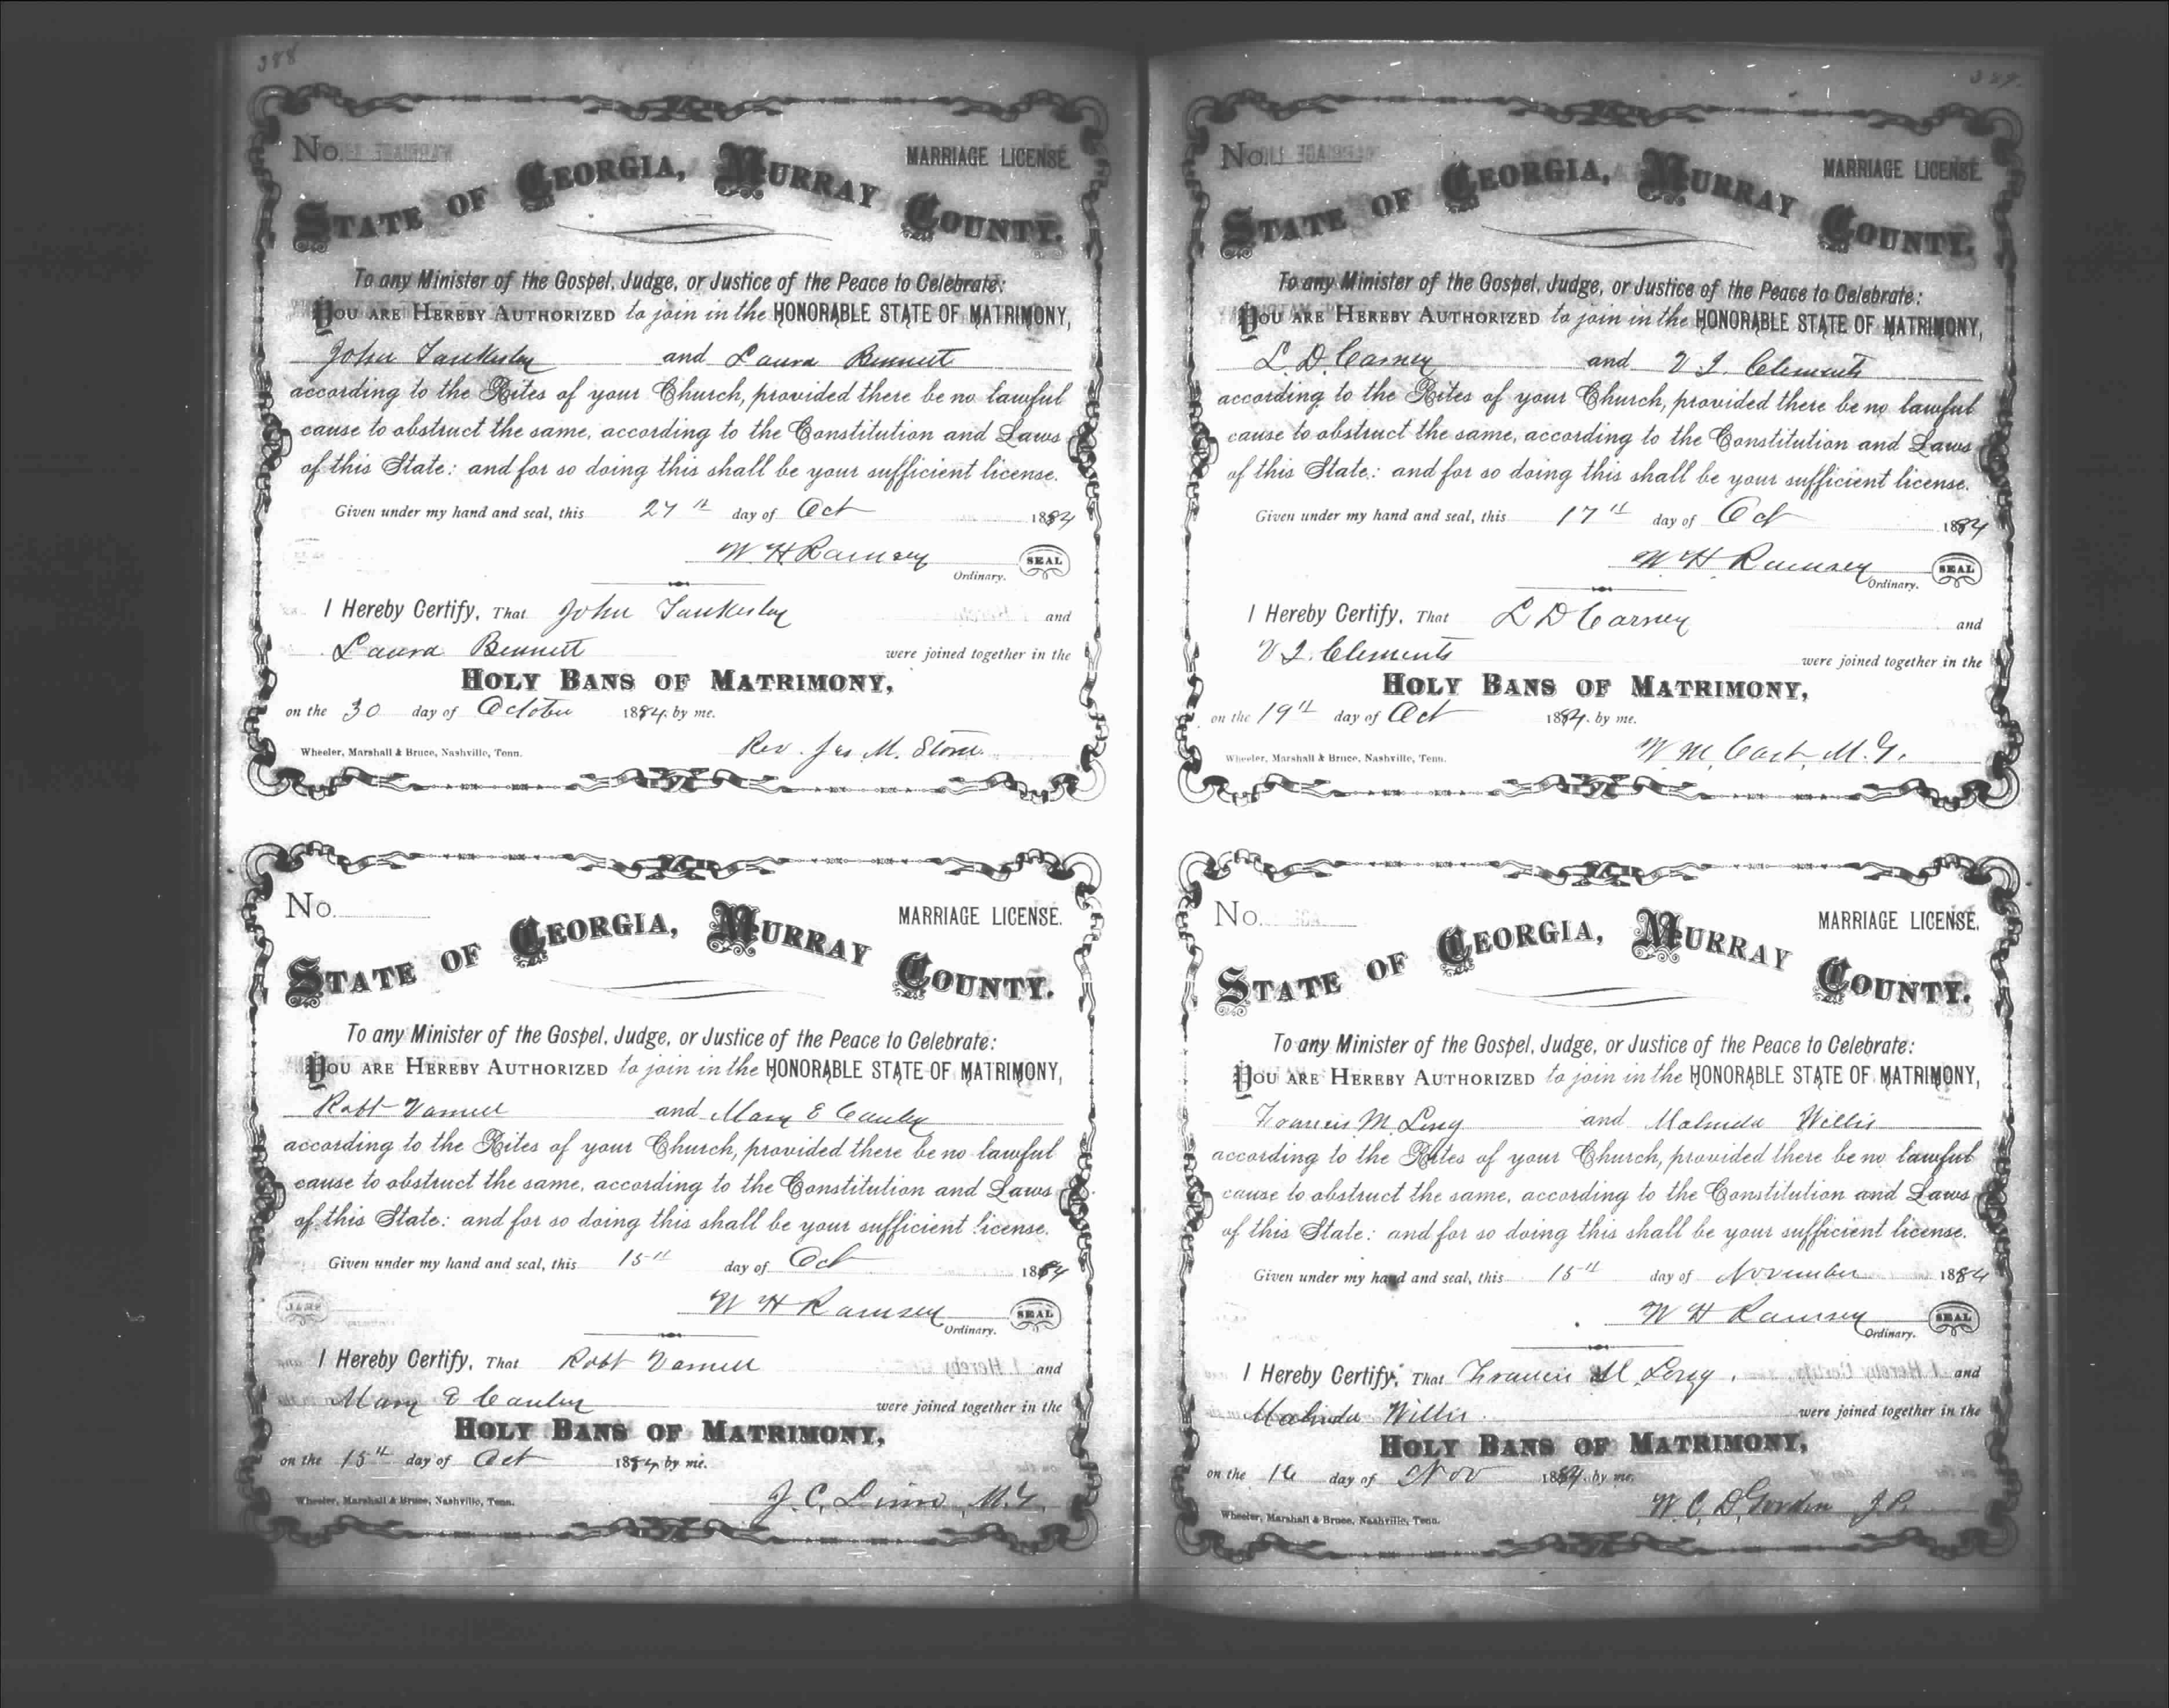 388
No.
MARRIAGE LICENSE.
STATE OF GEORGIA, MURRAY COUNTY.
To any Minister of the Gospel, Judge, or Justice of the Peace to Celebrate:
YOU ARE HEREBY AUTHORIZED to join in the HONORABLE STATE OF MATRIMONY,
John Tankesley and Laura Bennett
according to the Rites of your Church, provided there be no lawful
cause to obstruct the same, according to the Constitution and Laws
of this State: and for so doing this shall be your sufficient license.
Given under my hand and seal, this 27th day of Oct 1884
W. H. Ramsey SEAL
Ordinary.
I Hereby Certify, That John Tankesley and
Laura Bennett were joined together in the
HOLY BANS OF MATRIMONY,
on the 30 day of October 1884. by me.
Wheeler, Marshall & Bruce, Nashville, Tenn. Rev. Jas M. Stone
No.
MARRIAGE LICENSE.
STATE OF GEORGIA, MURRAY COUNTY.
To any Minister of the Gospel, Judge, or Justice of the Peace to Celebrate:
YOU ARE HEREBY AUTHORIZED to join in the HONORABLE STATE OF MATRIMONY,
Robt Varnell and Mary E
according to the Rites of your Church, provided there be no lawful
cause to obstruct the same, according to the Constitution and Laws
of this State: and for so doing this shall be your sufficient license.
Given under my hand and seal, this 15th day of Oct 1884
W H Ramsey SEAL
Ordinary.
I Hereby Certify, That Robt Varnell and
Mary E were joined together in the
HOLY BANS OF MATRIMONY,
on the 15th day of Oct 1884 by me.
Wheeler, Marshall & Bruce, Nashville, Tenn. J. C. M.G.
389.
No.
MARRIAGE LICENSE.
STATE OF GEORGIA, MURRAY COUNTY.
To any Minister of the Gospel, Judge, or Justice of the Peace to Celebrate:
YOU ARE HEREBY AUTHORIZED to join in the HONORABLE STATE OF MATRIMONY,
L. D. Carney and V I. Clements
according to the Rites of your Church, provided there be no lawful
cause to obstruct the same, according to the Constitution and Laws
of this State: and for so doing this shall be your sufficient license.
Given under my hand and seal, this 17th day of Oct 1884
W H Ramsey SEAL
Ordinary.
I Hereby Certify, That L D Carney and
V I. Clements were joined together in the
HOLY BANS OF MATRIMONY,
on the 19th day of Oct 1884. by me.
Wheeler, Marshall & Bruce, Nashville, Tenn. W. M. M.G.
No.
MARRIAGE LICENSE.
STATE OF GEORGIA, MURRAY COUNTY.
To any Minister of the Gospel, Judge, or Justice of the Peace to Celebrate:
YOU ARE HEREBY AUTHORIZED to join in the HONORABLE STATE OF MATRIMONY,
Francis M. Long and Malinda Willis
according to the Rites of your Church, provided there be no lawful
cause to obstruct the same, according to the Constitution and Laws
of this State: and for so doing this shall be your sufficient license.
Given under my hand and seal, this 15th day of November 1884
W H Ramsey SEAL
Ordinary.
I Hereby Certify, That Francis M. Long and
Malinda Willis were joined together in the
HOLY BANS OF MATRIMONY,
on the 16 day of Nov 1884. by me.
Wheeler, Marshall & Bruce, Nashville, Tenn. W. C. D. Gordon J.P.